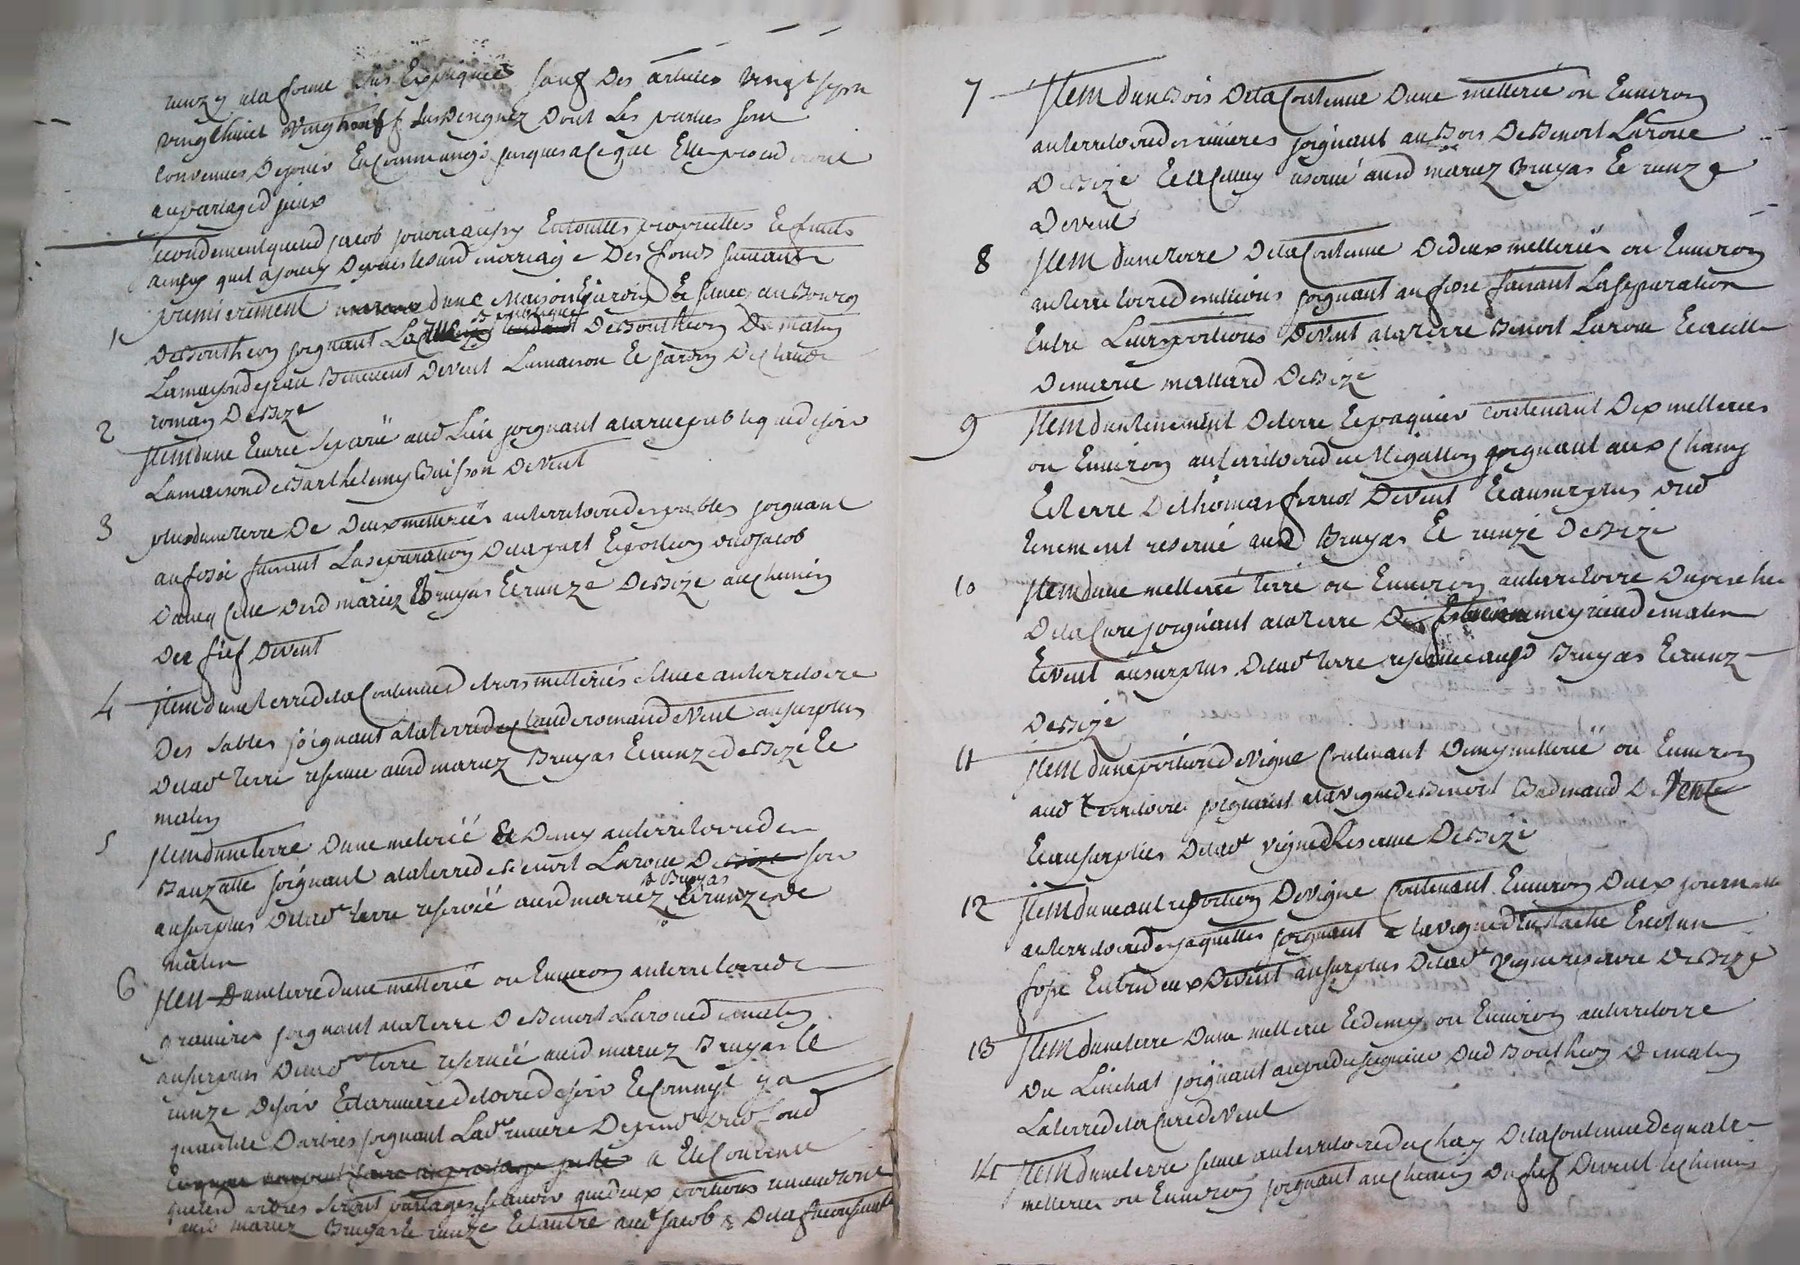 runzy a la forme sus Expliquee sauf Des articles vingt sept
vingt huict vingt neuf susDesignez Dont Les parties sont
convenues De jouir En commung jusques a ce que Elle procederont
au partage d'iceux
secondement que led jacob jouira aussy En touttes proprietes Et fruits
ainsy quil a jouy Depuis lesd mariage Des fonds suivants
1 premierement d'une Maison Et jardin Et situez au Bourg
De Bouthéon joignant La publique De Bouthéon De matin
La maison de jean De vent La maison Et jardin De claude
romany De Bize
2 Item d'une Ecurie separée aud Lieu joignant a la rue publique de soir
La maison de Barthelemy Buisson De Vent
3 plus d'une terre De Deux metterées au territoire des sables joignant
au fossé faisant La separation De la part Et portion dud jacob
D'avec celle Desd mariez Bruyas Et runze De Bize au chemin
Des fief De vent
4 Item d'une terre de la Contenue de trois metterées située au territoire
Des sables joignant a la terre de claude roman de Vent au surplus
De lad terre reservée ausd mariez Bruyas Et runze de Bize Et
matin
5 Item d'une terre D'une meterée Et Demy au territoire de
Bauzatte joignant a la terre de Benoit Laroue De soir
au surplus De lad terre reservée ausd mariez Bruyas Et runze de
matin
6 Item D'une terre d'une metterée ou Environ au territoire de
graviere joignant a la terre De Benoit Laroue de matin
au surplus De lad terre reservée ausd mariez Bruyas Et
runze De soir Et la riviere de Loire de soir Et comme il y a
quantité D'arbres joignant Lad riviere Dud fond
a Eté Convenu
que lesd arbres seront partagés scavoir que deux portions reviendront
ausd mariez Bruyas Et runze Et l'autre aud jacob
7 Item d'un Bois De la Contenue D'une metterée ou Environ
au territoire des rivieres joignant au Bois De Benoit Laroue
De Bize Et a celluy reservé ausd mariez Bruyas Et runze
De vent
8 Item d'une terre De la Contenue De deux metterées ou Environ
au territoire des joignant au fossé faisant La separation
Entre Leurs portions De vent a la terre Benoit Laroue Et a celle
De marie mallard De Bize
9 Item d'un tenement De terre Et paquier contenant Dix metterées
ou Environ au territoire de Megallon joignant aux champ
Et terre De thomas ferriol De vent Et au surplus dud
tenement reservé ausd Bruyas Et runze De Bize
10 Item d'une metterée terre ou Environ au territoire Du perche
De la Cure joignant a la terre De meyrieu de matin
Et vent au surplus De lad terre reservée ausd Bruyas Et runze
De Bize
11 Item d'une portion de Vigne Contenant Demy metterée ou Environ
aud territoire joignant a la vigne de Benoit Badinand De Vent
Et au surplus De lad vigne Reservée De Bize
12 Item d'une autre portion De Vigne Contenant Environ Deux journalle
au territoire des jaquettes joignant a la vigne d'Eustache Et a un
fossé Entre deux De vent au surplus De lad vigne reservée De Bize
13 Item d'une terre D'une metterée Et demy ou Environ au territoire
Du Linchat joignant au pré du seigneur Dud Bouthéon De matin
La terre de la Cure de Vent
14 Item d'une terre située au territoire de chay De la Contenue de quatre
metterées ou Environ joignant au chemin Du fief De vent le chemin